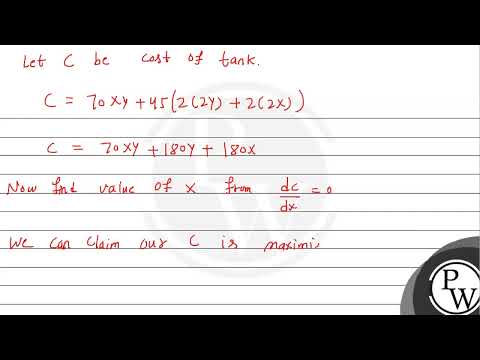 Let C be cost of tank.
C = 70xy + 45(2(2y) + 2(2x))
C = 70xy + 180y + 180x
Now find value of x from dc/dx = 0
We can claim our C is maximi
P
W